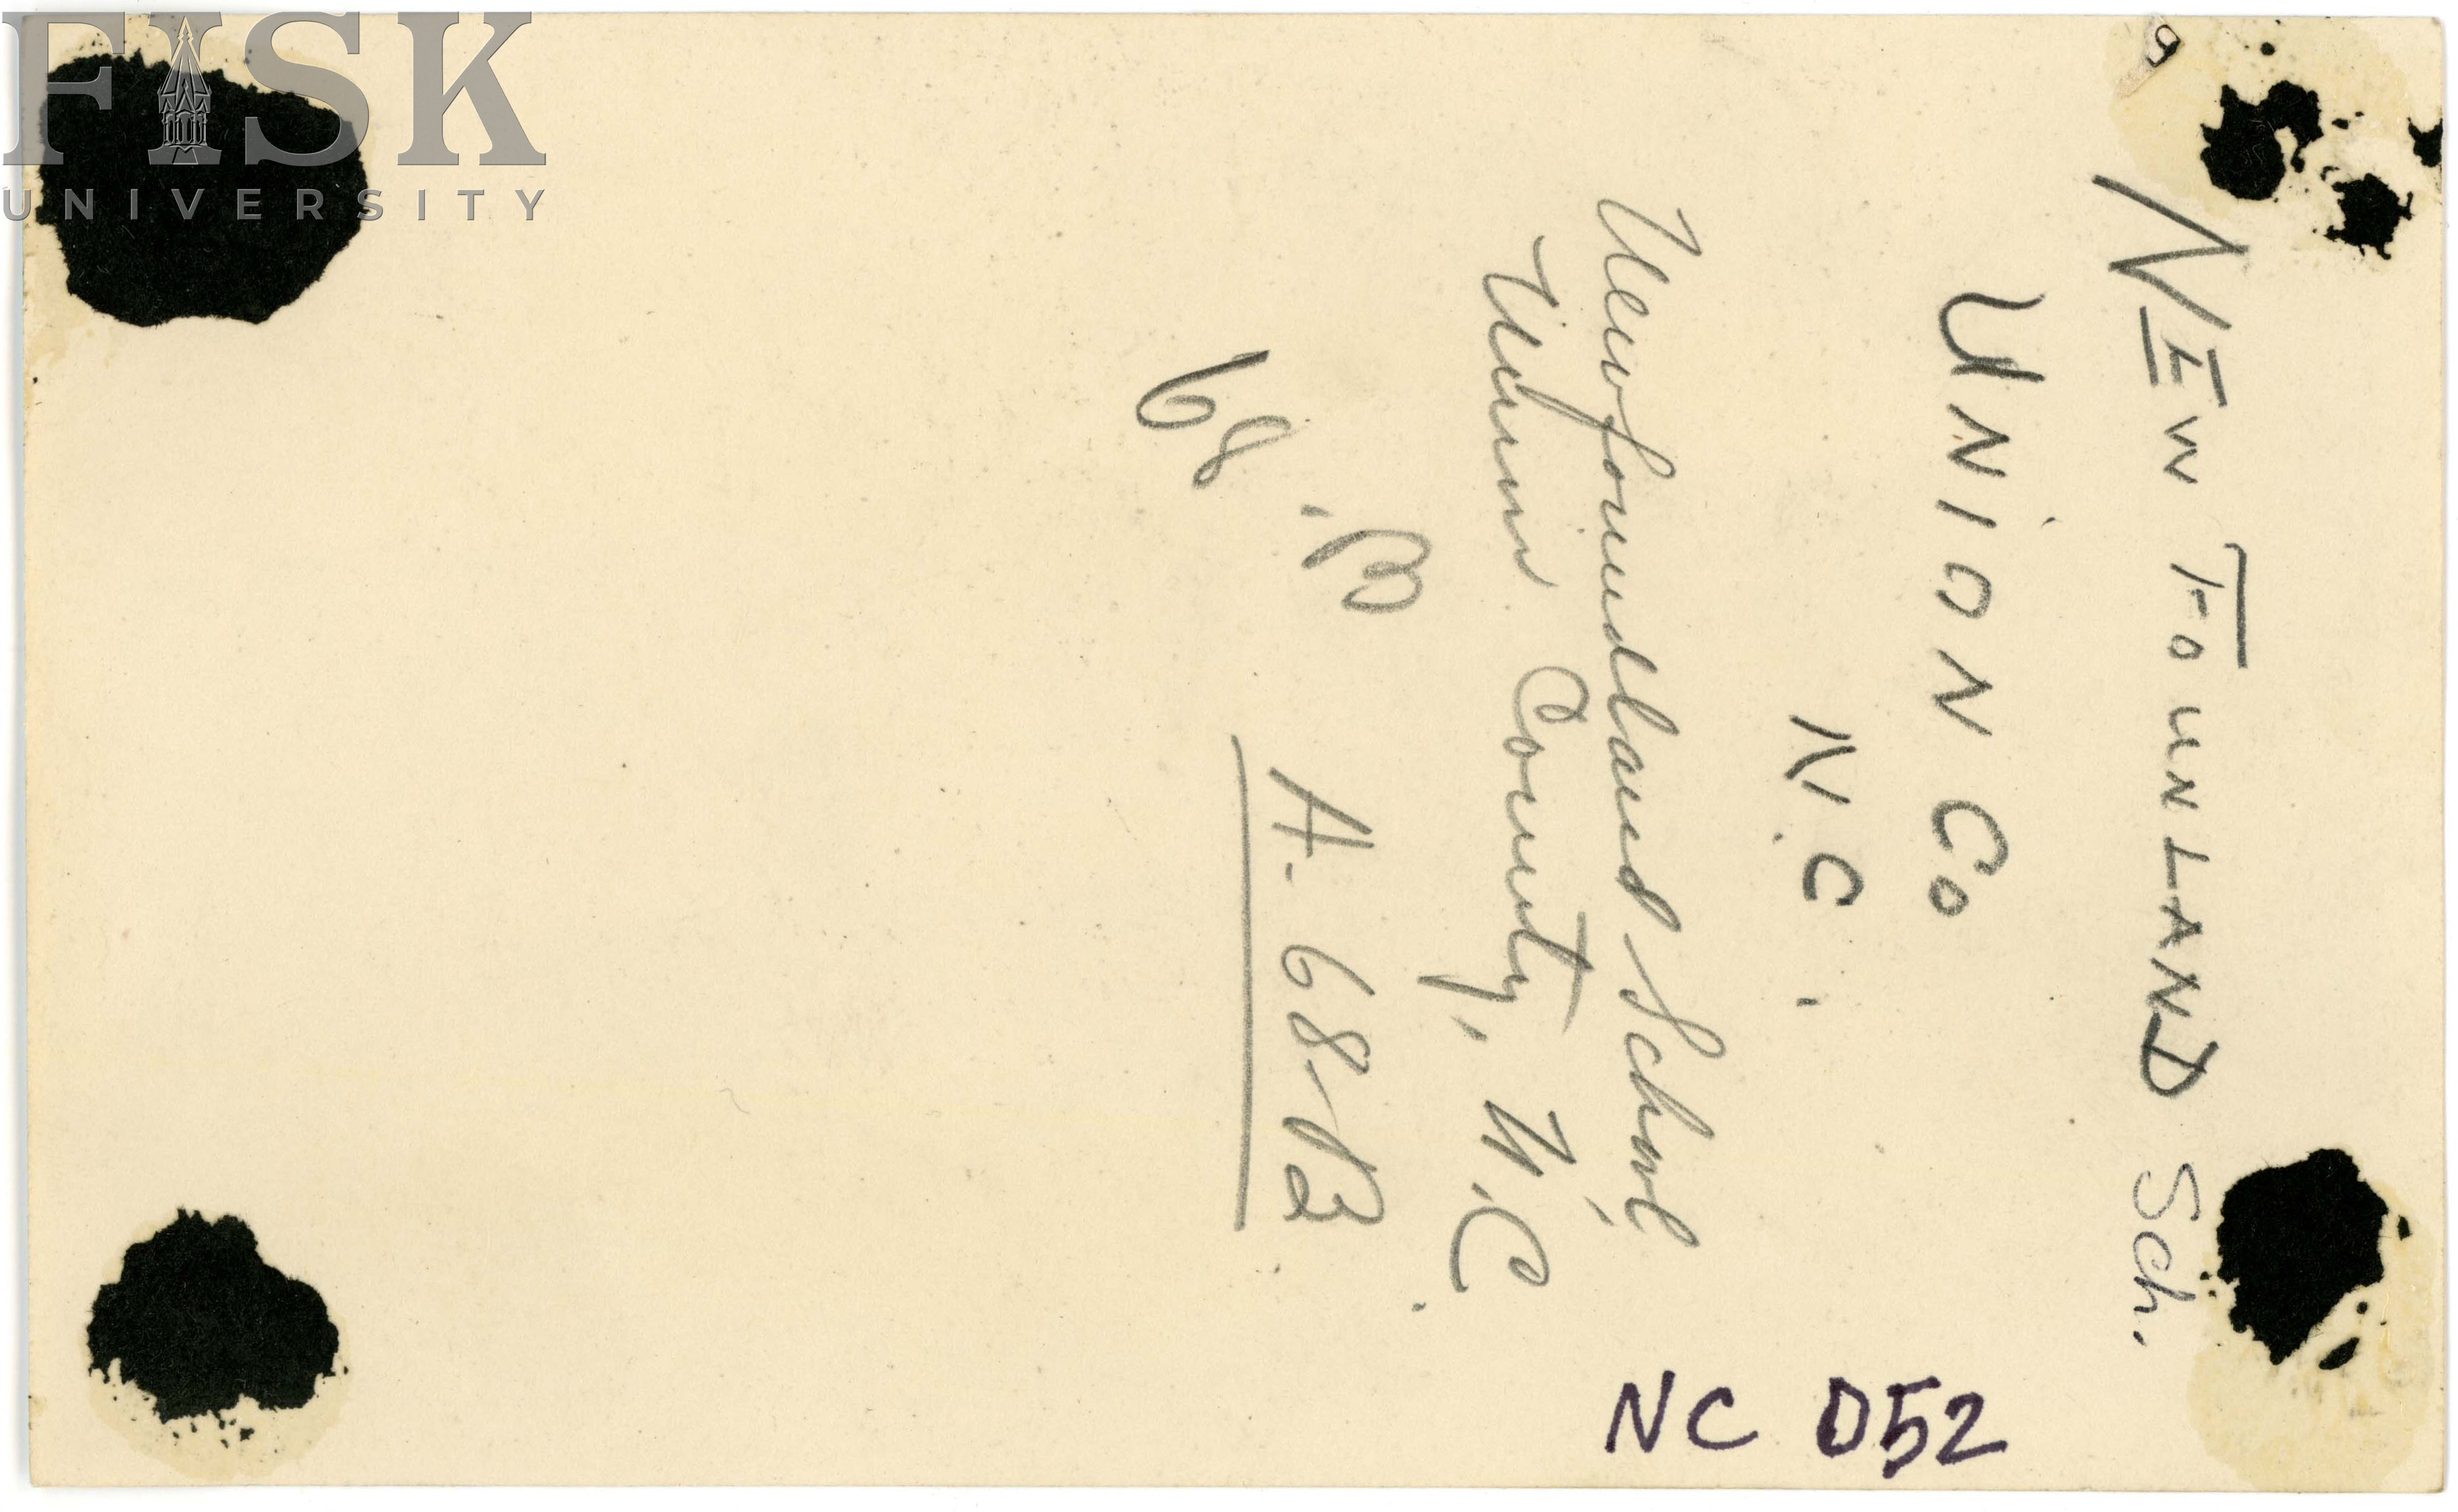 FISK
UNIVERSITY
NEW FOUNLAND Sch.
UNION Co
N.C.
Newfoundland School
Union County, N.C.
68 B
A-68B
NC D52